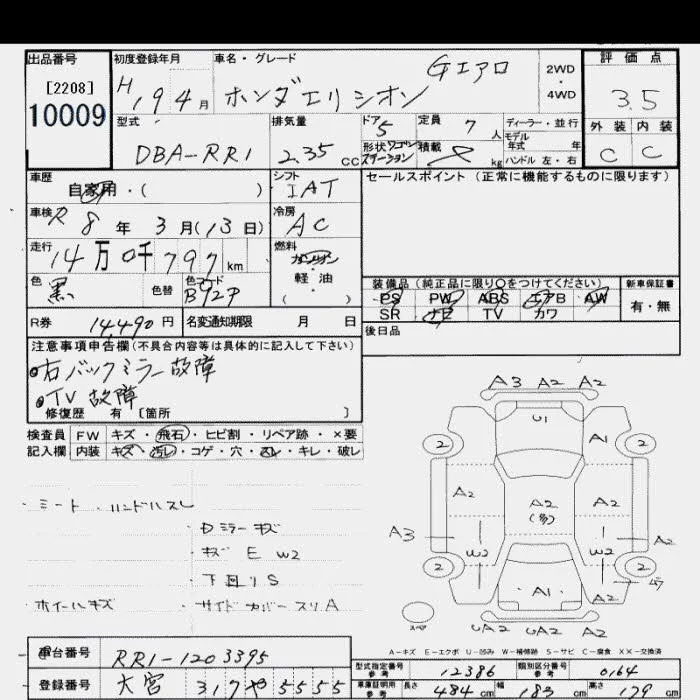 出品番号 初度登録年月 車名・グレード 評価点
[2208] H19 4月 ホンダエリシオン Gエアロ 2WD・4WD 3.5
10009
型式 排気量 ドア 定員 ディーラー・並行 外装 内装
DBA-RR1 2.35 CC 5 7人 モデル年式 年 C C
形状 ワゴン ステーション 積載 kg ハンドル 左・右
車歴 シフト セールスポイント (正常に機能するものに限ります)
自家用・( ) IAT
車検 R8年3月(13日) 冷房 AC
走行 14万0千797km 燃料 ガソリン・軽油 ( )
色 黒 色替 色コード B92P
装備品 (純正品に限り○をつけてください) 新車保証書
PS PW ABS エアB AW 有・無
SR ナビ TV カワ
R券 14,490円 名変通知期限 月 日 後日品
注意事項申告欄(不具合内容等は具体的に記入して下さい)
●右バックミラー故障
●TV故障
修復歴 有 [箇所 ]
検査員 FW キズ・飛石・ヒビ割・リペア跡・×要
記入欄 内装 キズ・汚レ・コゲ・穴・凹・キレ・破レ
A3 A2 A2
U1
2 A1 2
A2 A2 A2
A3 A2
W2 W2
2 2
A1 A2
A2 UA2 A2
スペア
・シート ・ハンドルスレ
・Dミラーキズ
・キズ E W2
・下回りS
・ホイールキズ ・サイドカバースリA
A-キズ E-エクボ U-凹み W-補修跡 S-サビ C-腐食 XX-交換済
車台番号 RR1-1203395
登録番号 大宮 317や5555
型式指定番号 参考 12386 類別区分番号 参考 0164
車庫証明用 参考 長さ 484cm 幅 183cm 高さ 179cm